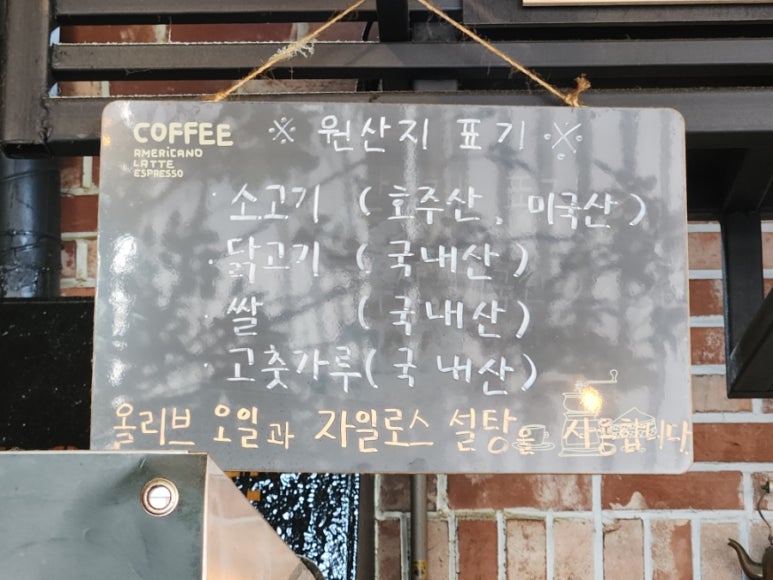 COFFEE
AMERICANO
LATTE
ESPRESSO
※ 원산지 표기 ※
· 소고기 ( 호주산, 미국산 )
· 닭고기 ( 국내산 )
· 쌀 ( 국내산 )
· 고춧가루 ( 국내산 )
올리브 오일과 자일로스 설탕을 사용합니다.